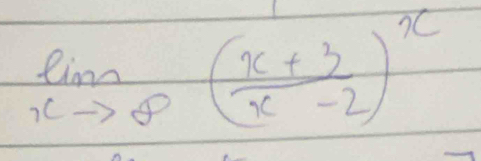 lim x → ∞ ( (x + 3) / (x - 2) )^x